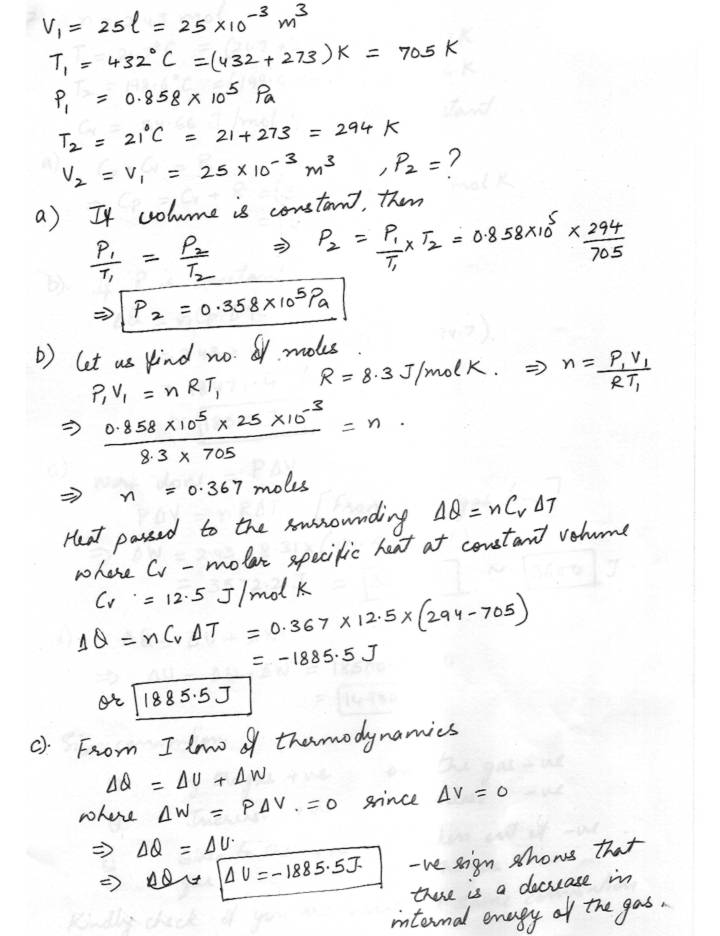 V₁ = 25 l = 25 × 10⁻³ m³
T₁ = 432°C = (432 + 273) K = 705 K
P₁ = 0.858 × 10⁵ Pa
T₂ = 21°C = 21 + 273 = 294 K
V₂ = V₁ = 25 × 10⁻³ m³ , P₂ = ?
a) If volume is constant, then
P₁/T₁ = P₂/T₂ ⇒ P₂ = P₁/T₁ × T₂ = 0.858×10⁵ × 294/705
⇒ P₂ = 0.358×10⁵ Pa
b) let us find no. of moles.
P₁V₁ = nRT₁ R = 8.3 J/mol K. ⇒ n = P₁V₁/RT₁
⇒ 0.858 ×10⁵ × 25 ×10⁻³ / 8.3 × 705 = n.
⇒ n = 0.367 moles
Heat passed to the surrounding ΔQ = nCv ΔT
where Cv - molar specific heat at constant volume
Cv = 12.5 J/mol K
ΔQ = nCv ΔT = 0.367 × 12.5 × (294-705)
= -1885.5 J
or 1885.5 J
c). From I law of thermodynamics
ΔQ = ΔU + ΔW
where ΔW = PΔV. = 0 since ΔV = 0
⇒ ΔQ = ΔU.
⇒ ΔU = -1885.5J.
-ve sign shows that
there is a decrease in
internal energy of the gas.